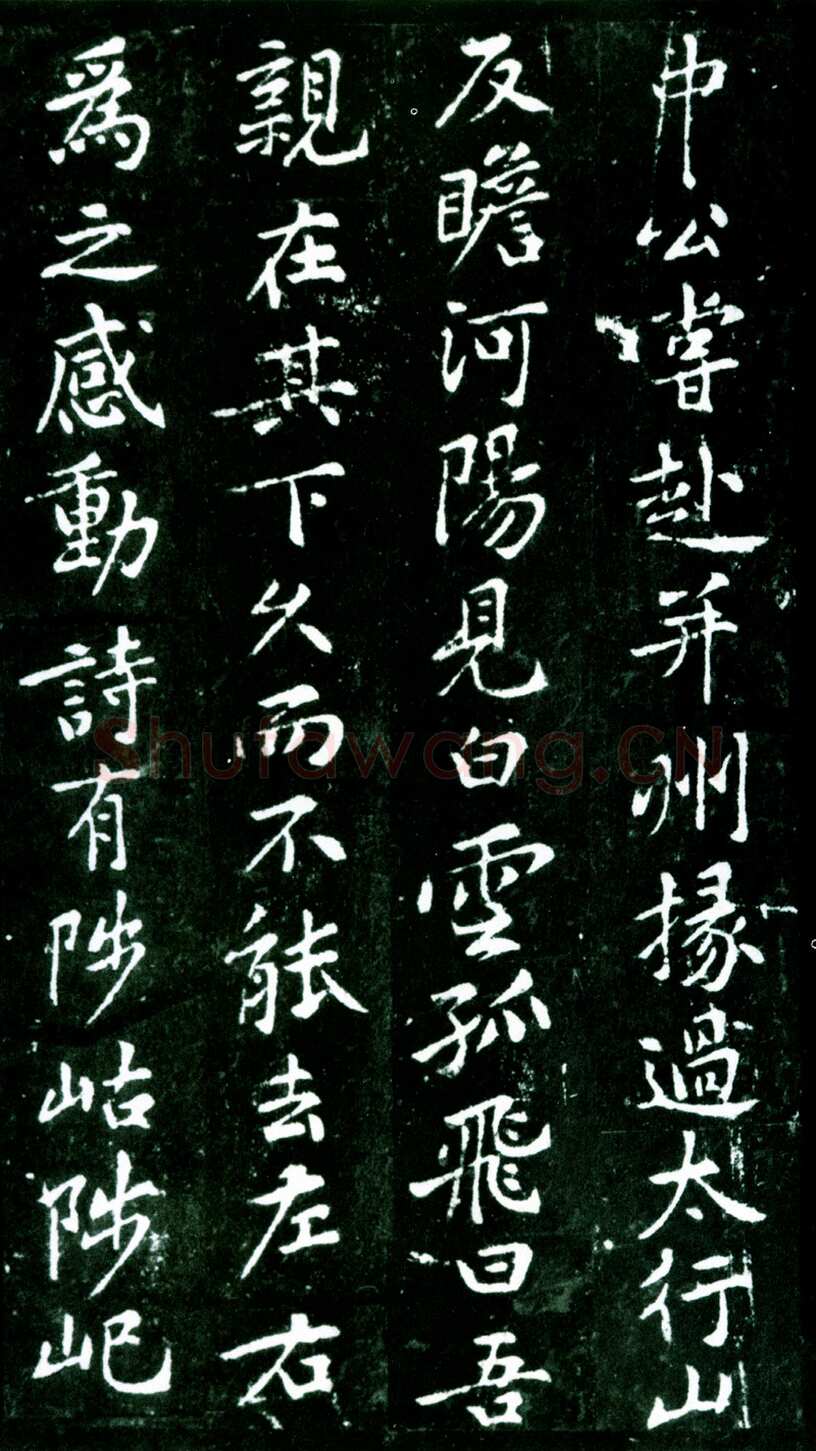 中公嘗赴并州掾過太行山
反瞻河陽見白雲孤飛曰吾
親在其下久而不能去左右
為之感動詩有陟岵陟屺
Shufawang.CN